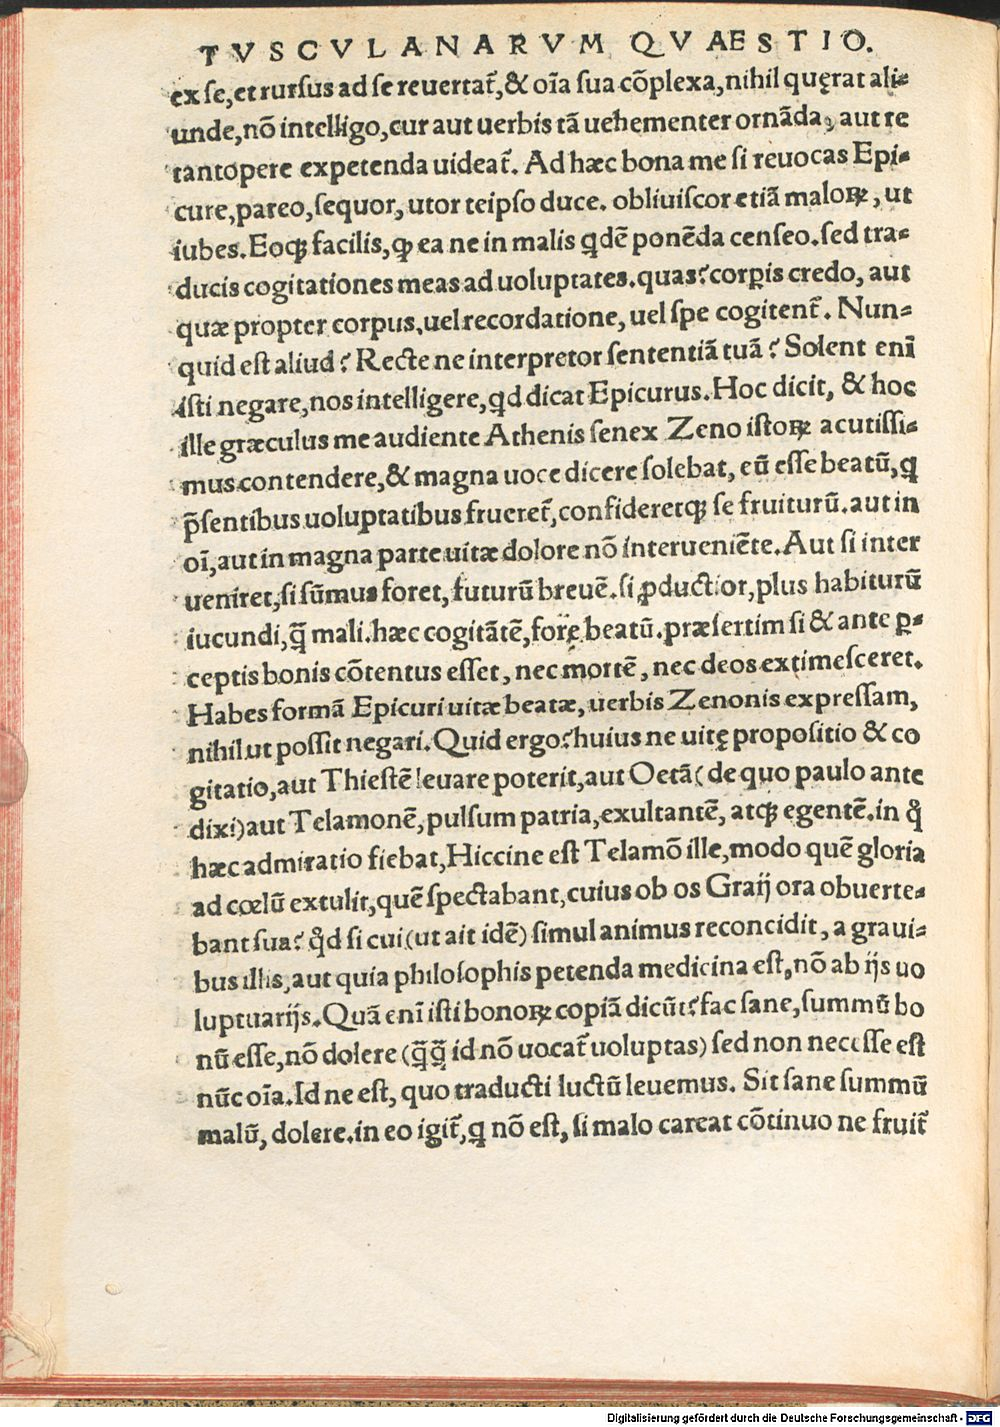 TVSCVLANARVM QVAESTIO.
ex se, et rursus ad se reuertat̃, & oĩa sua cõplexa, nihil quęrat ali-
unde, nõ intelligo, cur aut uerbis tã uehementer ornãda, aut re
tantopere expetenda uideat̃. Ad hæc bona me si reuocas Epi-
cure, pareo, sequor, utor teipso duce. obliuiscor etiã maloꝝ, ut
iubes. Eoqꝫ facilis, ꝙ ea ne in malis qdẽ ponẽda censeo. sed tra-
ducis cogitationes meas ad uoluptates. quas? corpis credo, aut
quæ propter corpus, uel recordatione, uel spe cogitent̃. Nun-
quid est aliud? Recte ne interpretor sententiã tuã? Solent enĩ
isti negare, nos intelligere, qd dicat Epicurus. Hoc dicit, & hoc
ille græculus me audiente Athenis senex Zeno istoꝝ acutissi-
mus contendere, & magna uoce dicere solebat, eũ esse beatũ, q
p̃sentibus uoluptatibus frueret̃, confideretqꝫ se fruiturũ. aut in
oĩ, aut in magna parte uitæ dolore nõ interueniẽte. Aut si inter
ueniret, si sũmus foret, futurũ breuẽ. si ꝓductior, plus habiturũ
iucundi, q̃ mali. hæc cogitãtẽ, fore beatũ. præsertim si & ante ꝑ-
ceptis bonis cõtentus esset, nec mortẽ, nec deos extimesceret.
Habes formã Epicuri uitæ beatæ, uerbis Zenonis expressam,
nihil ut possit negari. Quid ergo? huius ne uitę propositio & co
gitatio, aut Thiestẽ leuare poterit, aut Oetã (de quo paulo ante
dixi) aut Telamonẽ, pulsum patria, exultantẽ, atqꝫ egentẽ. in q̊
hæc admiratio fiebat, Hiccine est Telamõ ille, modo quẽ gloria
ad cœlũ extulit, quẽ spectabant, cuius ob os Graij ora obuerte-
bant sua? q̊d si cui (ut ait idẽ) simul animus reconcidit, a graui-
bus illis, aut quia philosophis petenda medicina est, nõ ab ijs uo
luptuarijs. Quã enĩ isti bonoꝝ copiã dicũt? fac sane, summũ bo
nũ esse, nõ dolere (q̃q̃ id nõ uocat̃ uoluptas) sed non necesse est
nũc oĩa. Id ne est, quo traducti luctũ leuemus. Sit sane summũ
malũ, dolere. in eo igit̃, q nõ est, si malo careat cõtinuo ne fruit̃
Digitalisierung gefördert durch die Deutsche Forschungsgemeinschaft - DFG